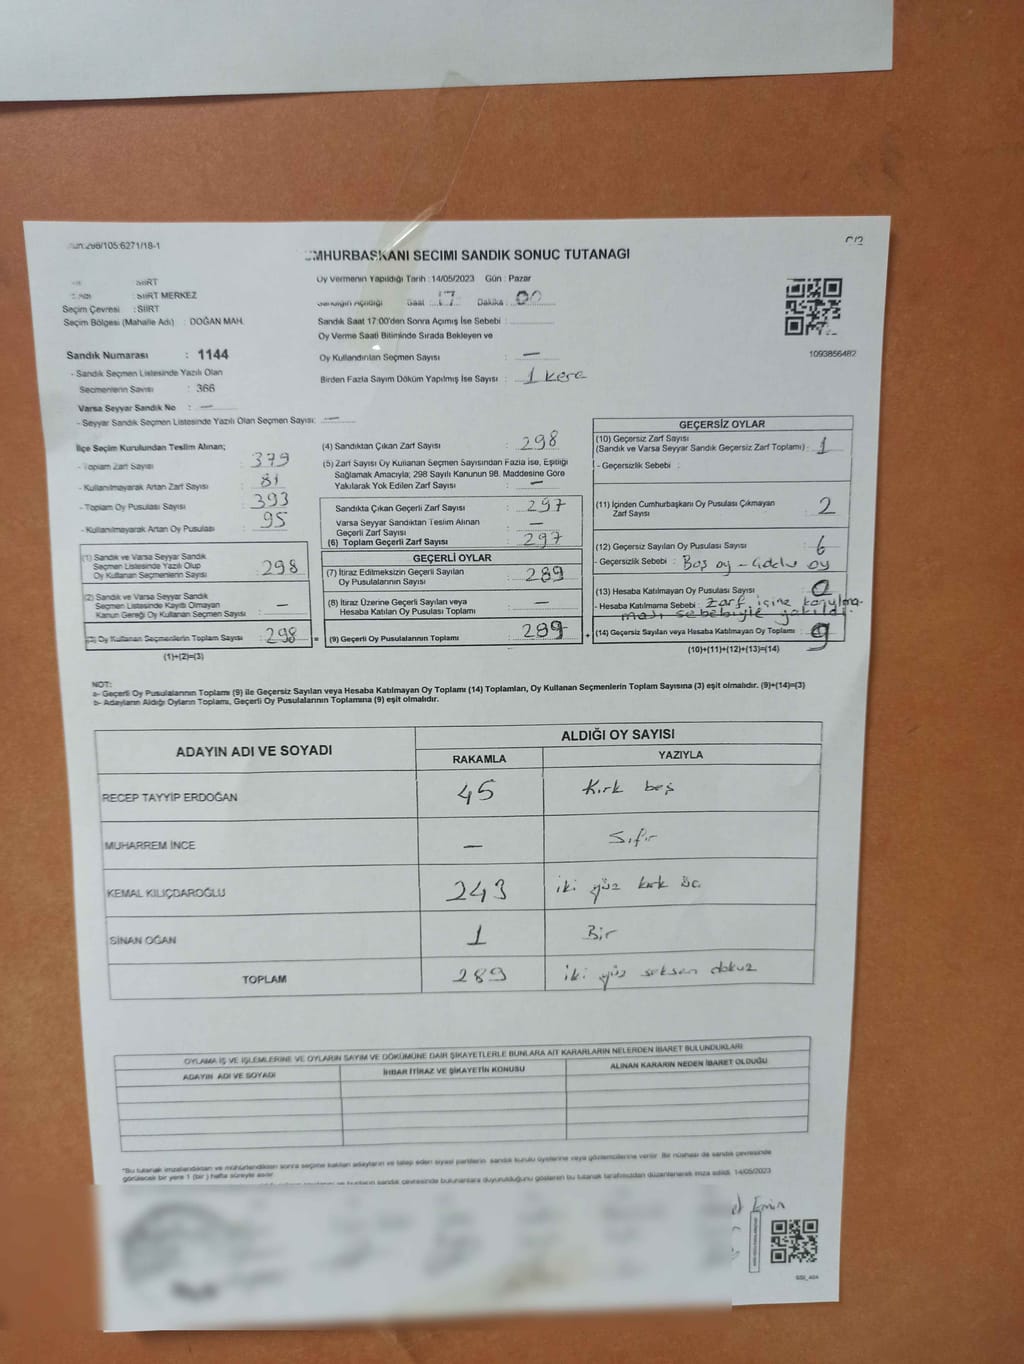 298/105:6271/18-1
MHURBAŞKANI SEÇİMİ SANDIK SONUÇ TUTANAĞI
Oy Vermenin Yapıldığı Tarih : 14/05/2023 Gün : Pazar
: SİİRT
: SİİRT MERKEZ
Seçim Çevresi : SİİRT
Seçim Bölgesi (Mahalle Adı) : DOĞAN MAH.
Sandığın Açıldığı Saat 17 Dakika : 00
Sandık Saat 17:00'den Sonra Açımış İse Sebebi :
Oy Verme Saati Bitiminde Sırada Bekleyen ve
Oy Kullandırılan Seçmen Sayısı : —
Birden Fazla Sayım Döküm Yapılmış İse Sayısı : 1 kere
1093856482
Sandık Numarası : 1144
- Sandık Seçmen Listesinde Yazılı Olan
Seçmenlerin Sayısı : 366
Varsa Seyyar Sandık No : —
- Seyyar Sandık Seçmen Listesinde Yazılı Olan Seçmen Sayısı: —
İlçe Seçim Kurulundan Teslim Alınan;
- Toplam Zarf Sayısı : 379
- Kullanılmayarak Artan Zarf Sayısı : 81
- Toplam Oy Pusulası Sayısı : 393
- Kullanılmayarak Artan Oy Pusulası : 95
(1) Sandık ve Varsa Seyyar Sandık
Seçmen Listesinde Yazılı Olup
Oy Kullanan Seçmenlerin Sayısı : 298
(2) Sandık ve Varsa Seyyar Sandık
Seçmen Listesinde Kayıtlı Olmayan
Kanun Gereği Oy Kullanan Seçmen Sayısı : —
(3) Oy Kullanan Seçmenlerin Toplam Sayısı : 298 =
(1)+(2)=(3)
(4) Sandıktan Çıkan Zarf Sayısı : 298
(5) Zarf Sayısı Oy Kullanan Seçmen Sayısından Fazla ise, Eşitliği
Sağlamak Amacıyla; 298 Sayılı Kanunun 98. Maddesine Göre
Yakılarak Yok Edilen Zarf Sayısı : —
Sandıkta Çıkan Geçerli Zarf Sayısı : 297
Varsa Seyyar Sandıktan Teslim Alınan
Geçerli Zarf Sayısı : —
(6) Toplam Geçerli Zarf Sayısı : 297
GEÇERLİ OYLAR
(7) İtiraz Edilmeksizin Geçerli Sayılan
Oy Pusulalarının Sayısı : 289
(8) İtiraz Üzerine Geçerli Sayılan veya
Hesaba Katılan Oy Pusulası Toplamı : —
(9) Geçerli Oy Pusulalarının Toplamı : 289 +
GEÇERSİZ OYLAR
(10) Geçersiz Zarf Sayısı
(Sandık ve Varsa Seyyar Sandık Geçersiz Zarf Toplamı) : 1
- Geçersizlik Sebebi :
(11) İçinden Cumhurbaşkanı Oy Pusulası Çıkmayan
Zarf Sayısı : 2
(12) Geçersiz Sayılan Oy Pusulası Sayısı : 6
- Geçersizlik Sebebi : Boş oy - oy
(13) Hesaba Katılmayan Oy Pusulası Sayısı : 0
- Hesaba Katılmama Sebebi : Zarf içine konulma-
ması sebebiyle
(14) Geçersiz Sayılan veya Hesaba Katılmayan Oy Toplamı : 9
(10)+(11)+(12)+(13)=(14)
NOT:
a- Geçerli Oy Pusulalarının Toplamı (9) ile Geçersiz Sayılan veya Hesaba Katılmayan Oy Toplamı (14) Toplamları, Oy Kullanan Seçmenlerin Toplam Sayısına (3) eşit olmalıdır. (9)+(14)=(3)
b- Adayların Aldığı Oyların Toplamı, Geçerli Oy Pusulalarının Toplamına (9) eşit olmalıdır.
ADAYIN ADI VE SOYADI ALDIĞI OY SAYISI
RAKAMLA YAZIYLA
RECEP TAYYİP ERDOĞAN 45 Kırk beş
MUHARREM İNCE — Sıfır
KEMAL KILIÇDAROĞLU 243 iki yüz kırk üç
SİNAN OĞAN 1 Bir
TOPLAM 289 iki yüz seksen dokuz
OYLAMA İŞ VE İŞLEMLERİNE VE OYLARIN SAYIM VE DÖKÜMÜNE DAİR ŞİKAYETLERLE BUNLARA AİT KARARLARIN NELERDEN İBARET BULUNDUKLARI
ADAYIN ADI VE SOYADI İHBAR İTİRAZ VE ŞİKAYETİN KONUSU ALINAN KARARIN NEDEN İBARET OLDUĞU
"Bu tutanak imzalandıktan ve mühürlendikten sonra seçime katılan adayların ve talep eden siyasi partilerin sandık kurulu üyelerine veya gözlemcilerine verilir. Bir nüshası da sandık çevresinde
görülecek bir yere 1 (bir) hafta süreyle asılır.
sandık çevresinde bulunanlara duyurulduğunu gösteren bu tutanak tarafımızdan düzenlenerek imza edildi. 14/05/2023
Emin